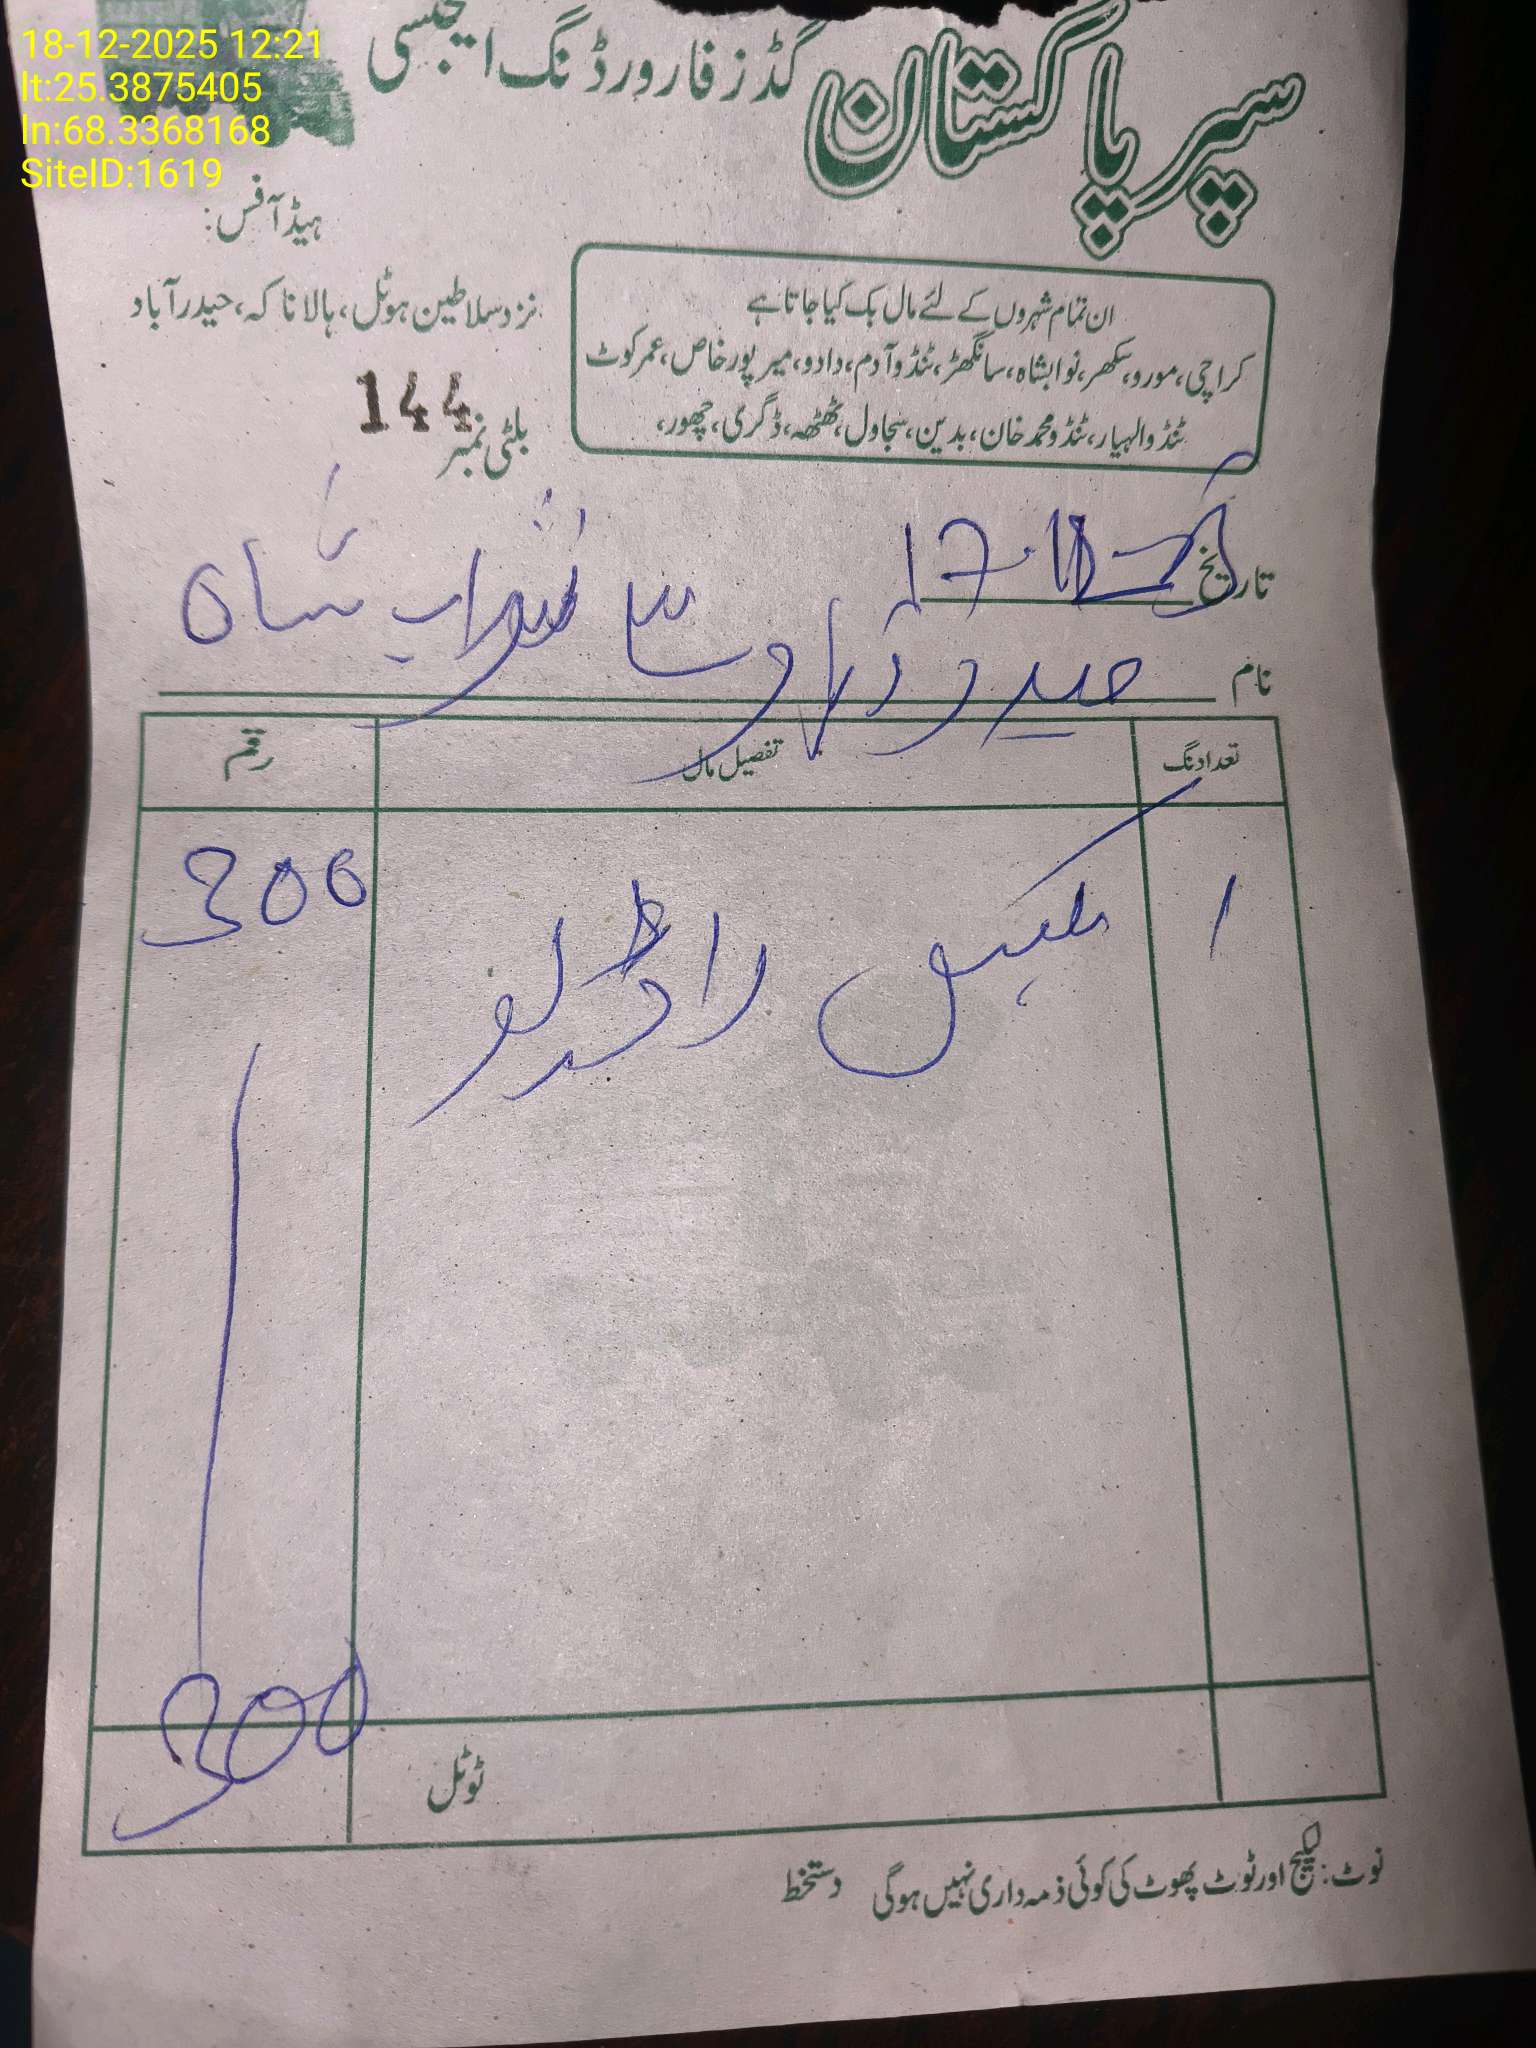 18-12-2025 12:21
lt:25.3875405
ln:68.3368168
SiteID:1619
سپر پاکستان گڈز فارورڈنگ ایجنسی
ہیڈ آفس:
نزد سلاطین ہوٹل، ہالا ناکہ، حیدرآباد
ان تمام شہروں کے لئے مال بک کیا جاتا ہے
کراچی، مورو، سکھر، نوابشاہ، سانگھڑ، ٹنڈوآدم، دادو، میرپورخاص، عمرکوٹ
ٹنڈوالہیار، ٹنڈو محمد خان، بدین، سجاول، ٹھٹھہ، ڈگری، چھور،
بلٹی نمبر 144
تاریخ 17-
نام شاہ
تعداد نگ تفصیل مال رقم
1 300
ٹوٹل 300
نوٹ: لیکیج اور ٹوٹ پھوٹ کی کوئی ذمہ داری نہیں ہوگی دستخط